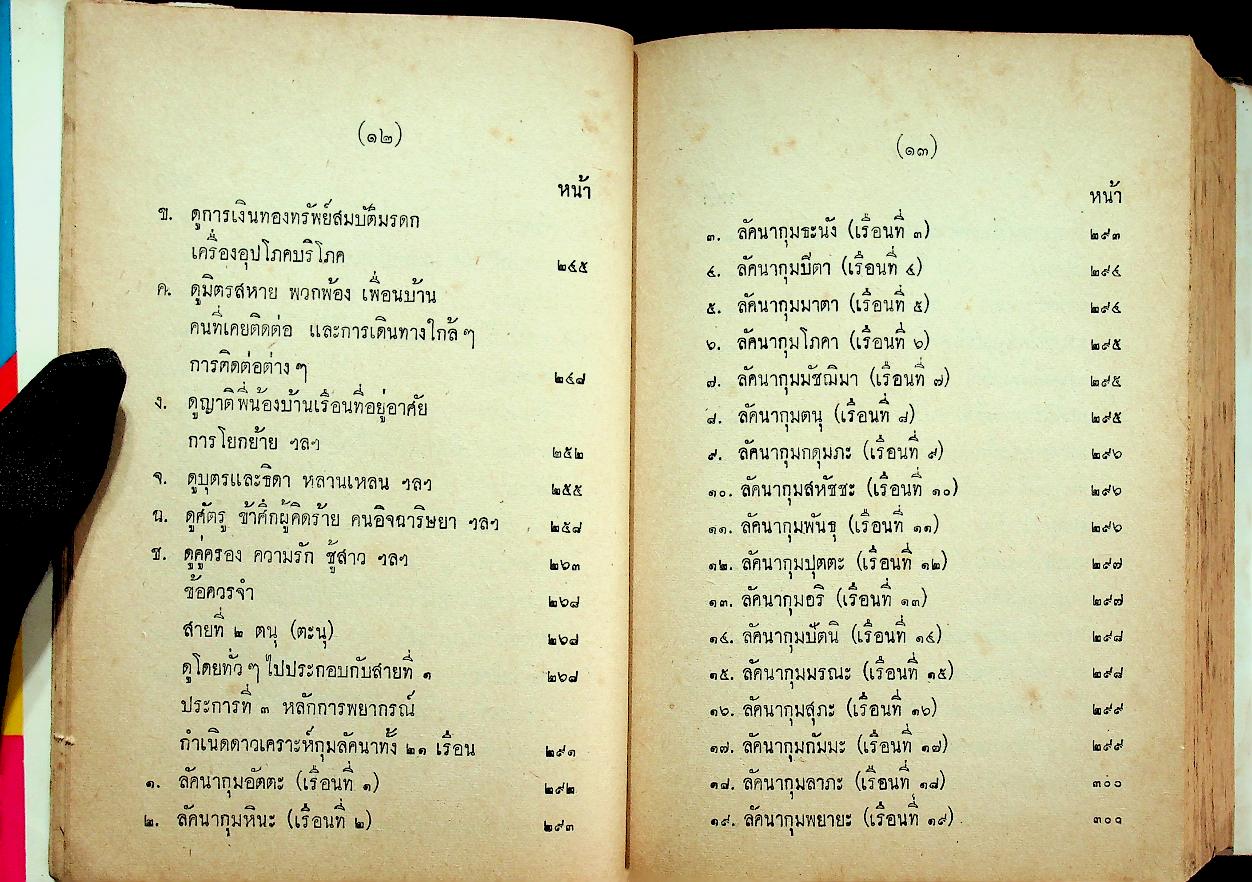 (๑๒)
หน้า
ข. ดูการเงินทองทรัพย์สมบัติมรดก
เครื่องอุปโภคบริโภค ๒๔๕
ค. ดูมิตรสหาย พวกพ้อง เพื่อนบ้าน
คนที่เคยติดต่อ และการเดินทางใกล้ ๆ
การติดต่อต่าง ๆ ๒๔๘
ง. ดูญาติพี่น้องบ้านเรือนที่อยู่อาศัย
การโยกย้าย ฯลฯ ๒๕๒
จ. ดูบุตรและธิดา หลานเหลน ฯลฯ ๒๕๕
ฉ. ดูศัตรู ข้าศึกผู้คิดร้าย คนอิจฉาริษยา ฯลฯ ๒๕๘
ช. ดูคู่ครอง ความรัก ชู้สาว ฯลฯ ๒๖๓
ข้อควรจำ ๒๖๘
สายที่ ๒ ตนุ (ตะนุ) ๒๖๘
ดูโดยทั่ว ๆ ไปประกอบกับสายที่ ๑ ๒๖๘
ประการที่ ๓ หลักการพยากรณ์
กำเนิดดาวเคราะห์กุมลัคนาทั้ง ๒๑ เรือน ๒๙๑
๑. ลัคนากุมอัตตะ (เรือนที่ ๑) ๒๙๒
๒. ลัคนากุมหินะ (เรือนที่ ๒) ๒๙๓
(๑๓)
หน้า
๓. ลัคนากุมธะนัง (เรือนที่ ๓) ๒๙๓
๔. ลัคนากุมปีตา (เรือนที่ ๔) ๒๙๔
๕. ลัคนากุมมาตา (เรือนที่ ๕) ๒๙๔
๖. ลัคนากุมโภคา (เรือนที่ ๖) ๒๙๕
๗. ลัคนากุมมัชฌิมา (เรือนที่ ๗) ๒๙๕
๘. ลัคนากุมตนุ (เรือนที่ ๘) ๒๙๕
๙. ลัคนากุมกดุมภะ (เรือนที่ ๙) ๒๙๖
๑๐. ลัคนากุมสหัชชะ (เรือนที่ ๑๐) ๒๙๖
๑๑. ลัคนากุมพันธุ (เรือนที่ ๑๑) ๒๙๖
๑๒. ลัคนากุมปุตตะ (เรือนที่ ๑๒) ๒๙๗
๑๓. ลัคนากุมอริ (เรือนที่ ๑๓) ๒๙๗
๑๔. ลัคนากุมปัตนิ (เรือนที่ ๑๔) ๒๙๘
๑๕. ลัคนากุมมรณะ (เรือนที่ ๑๕) ๒๙๘
๑๖. ลัคนากุมสุภะ (เรือนที่ ๑๖) ๒๙๙
๑๗. ลัคนากุมกัมมะ (เรือนที่ ๑๗) ๒๙๙
๑๘. ลัคนากุมลาภะ (เรือนที่ ๑๘) ๓๐๐
๑๙. ลัคนากุมพยายะ (เรือนที่ ๑๙) ๓๐๑